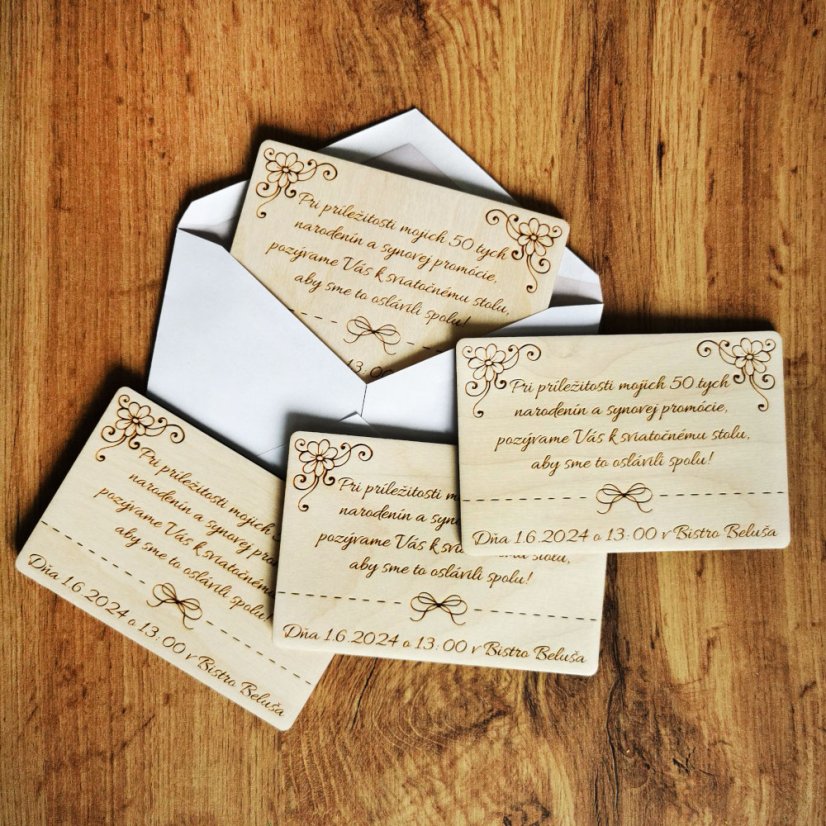 Pri príležitosti mojich 50 tych
narodenín a synovej promócie,
pozývame Vás k sviatočnému stolu,
aby sme to oslávili spolu!
13:00
Pri príležitosti mojich 50 tych
narodenín a synovej promócie,
pozývame Vás k sviatočnému stolu,
aby sme to oslávili spolu!
Dňa 1.6.2024 o 13:00 v Bistro Beluša
Pri príležitosti mojich
narodenín a synovej
pozývame Vás k sviatočnému
aby sme to oslávili spolu!
Dňa 1.6.2024 o 13:00 v Bistro Beluša
Pri príležitosti mojich
narodenín a syno
pozývame Vás k sviatočnému stolu,
aby sme to oslávili spolu!
Dňa 1.6.2024 o 13:00 v Bistro Beluša